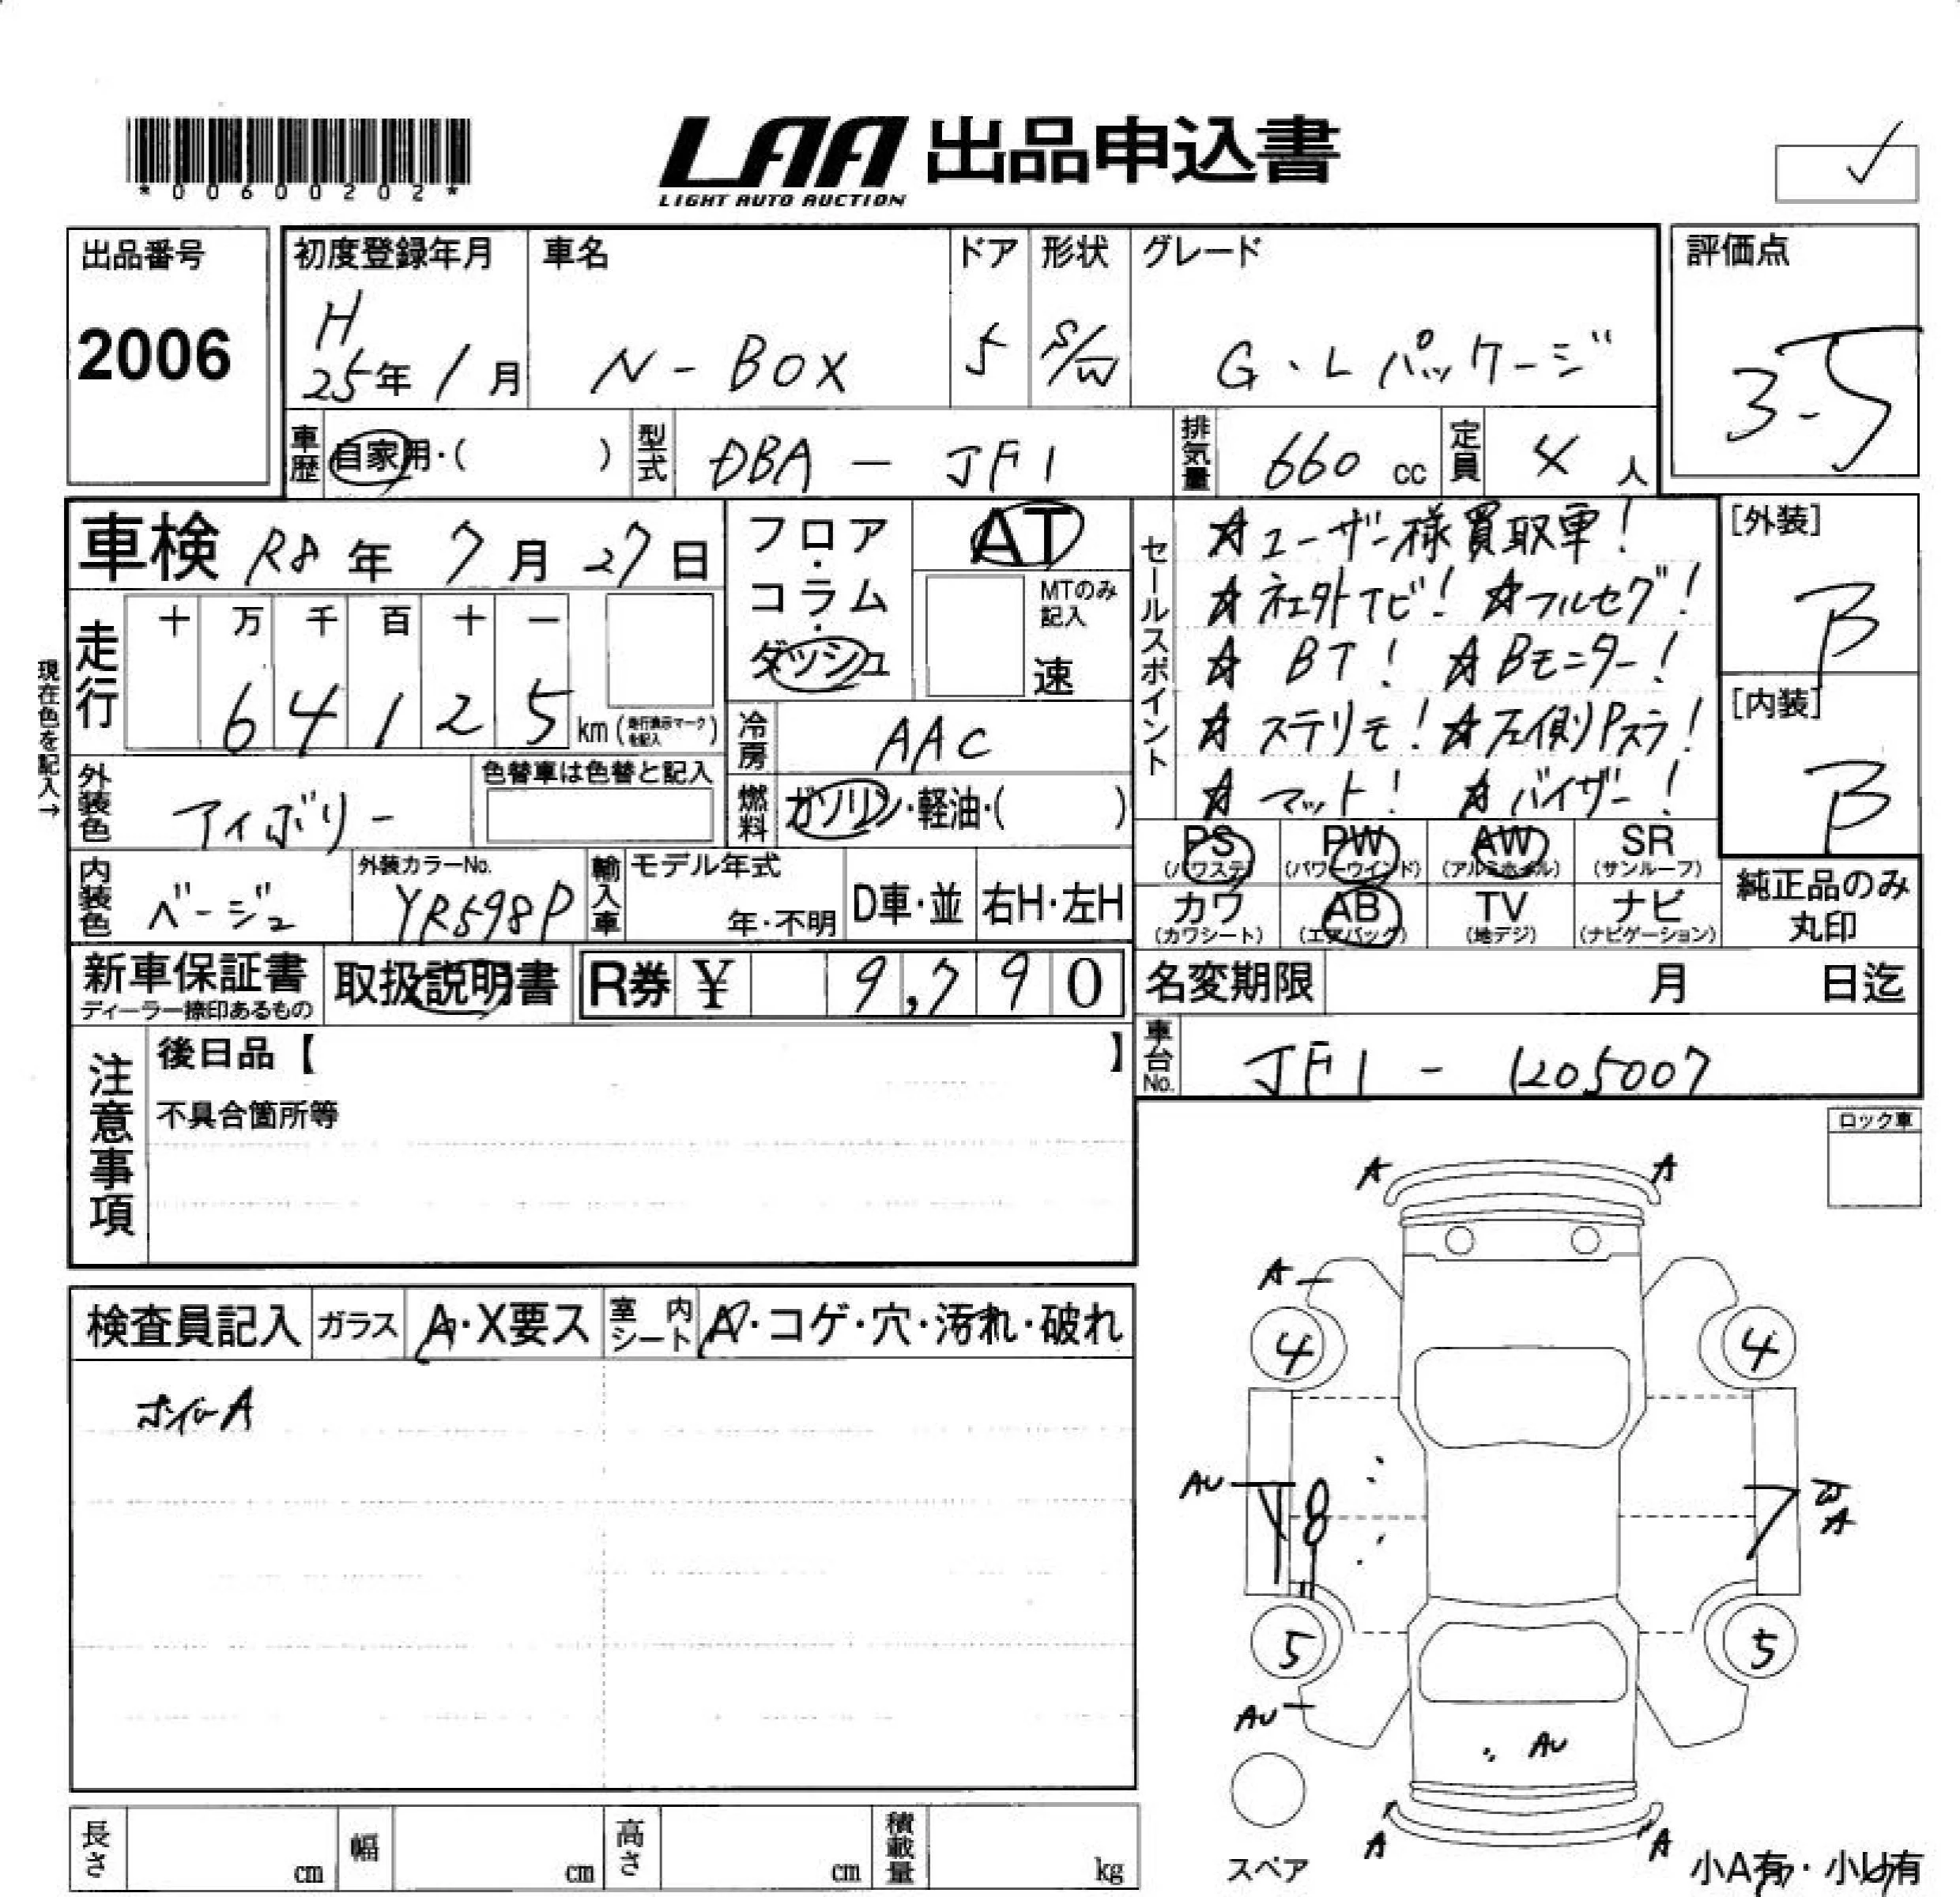 *00600202*
LAA 出品申込書
LIGHT AUTO AUCTION
出品番号
2006
初度登録年月
H
25年 1月
車名
N-BOX
ドア
5
形状
S/W
グレード
G・Lパッケージ
評価点
3.5
車歴
自家用・( )
型式
DBA - JF1
排気量
660 cc
定員
4 人
車検 R8年 7月 27日
走行
十 万 千 百 十 一
6 4 1 2 5 km (走行表示マークを記入)
現在色を記入→
フロア・コラム・ダッシュ
AT
MTのみ記入
速
冷房
AAC
燃料
ガソリン・軽油・( )
セールスポイント
☆ユーザー様買取車!
☆社外ナビ! ☆フルセグ!
☆BT! ☆Bモニター!
☆ステリモ! ☆左側Pスラ!
☆マット! ☆バイザー!
[外装]
B
[内装]
B
外装色
アイボリー
色替車は色替と記入
内装色
ベージュ
外装カラーNo.
YR598P
輸入車
モデル年式
年・不明
D車・並
右H・左H
PS
(パワステ)
PW
(パワーウインド)
AW
(アルミホイル)
SR
(サンルーフ)
カワ
(カワシート)
AB
(エアバック)
TV
(地デジ)
ナビ
(ナビゲーション)
純正品のみ
丸印
新車保証書
ディーラー捺印あるもの
取扱説明書
R券 ¥ 9,790
名変期限 月 日迄
車台No.
JF1 - 1205007
注意事項
後日品【 】
不具合箇所等
ロック車
検査員記入
ガラス
A・X要ス
室内シート
A・コゲ・穴・汚れ・破れ
ホイルA
A A
A
4 4
AU
A
5 5
AU
AU
A A
スペア
小A有・小U有
長さ cm
幅 cm
高さ cm
積載量 kg